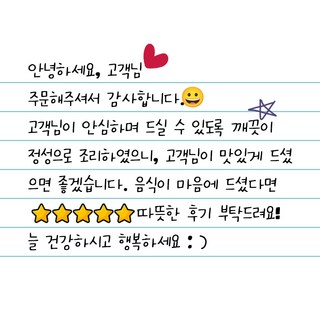 안녕하세요, 고객님
주문해주셔서 감사합니다.😀
고객님이 안심하며 드실 수 있도록 깨끗이
정성으로 조리하였으니, 고객님이 맛있게 드셨
으면 좋겠습니다. 음식이 마음에 드셨다면
⭐⭐⭐⭐⭐따뜻한 후기 부탁드려요!
늘 건강하시고 행복하세요 : )